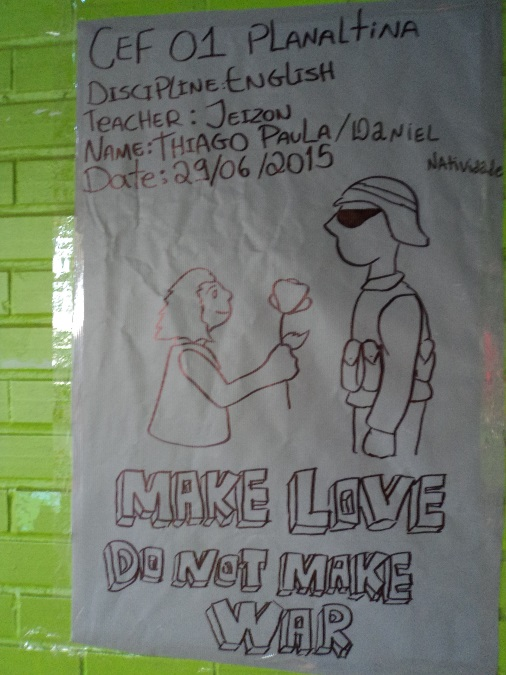 CEF 01 PLANALTINA
DISCIPLINE: ENGLISH
TEACHER: JEIZON
NAME: THIAGO PAULA/DANIEL
NATividade
Date: 29/06/2015
MAKE LOVE
DO NOT MAKE
WAR